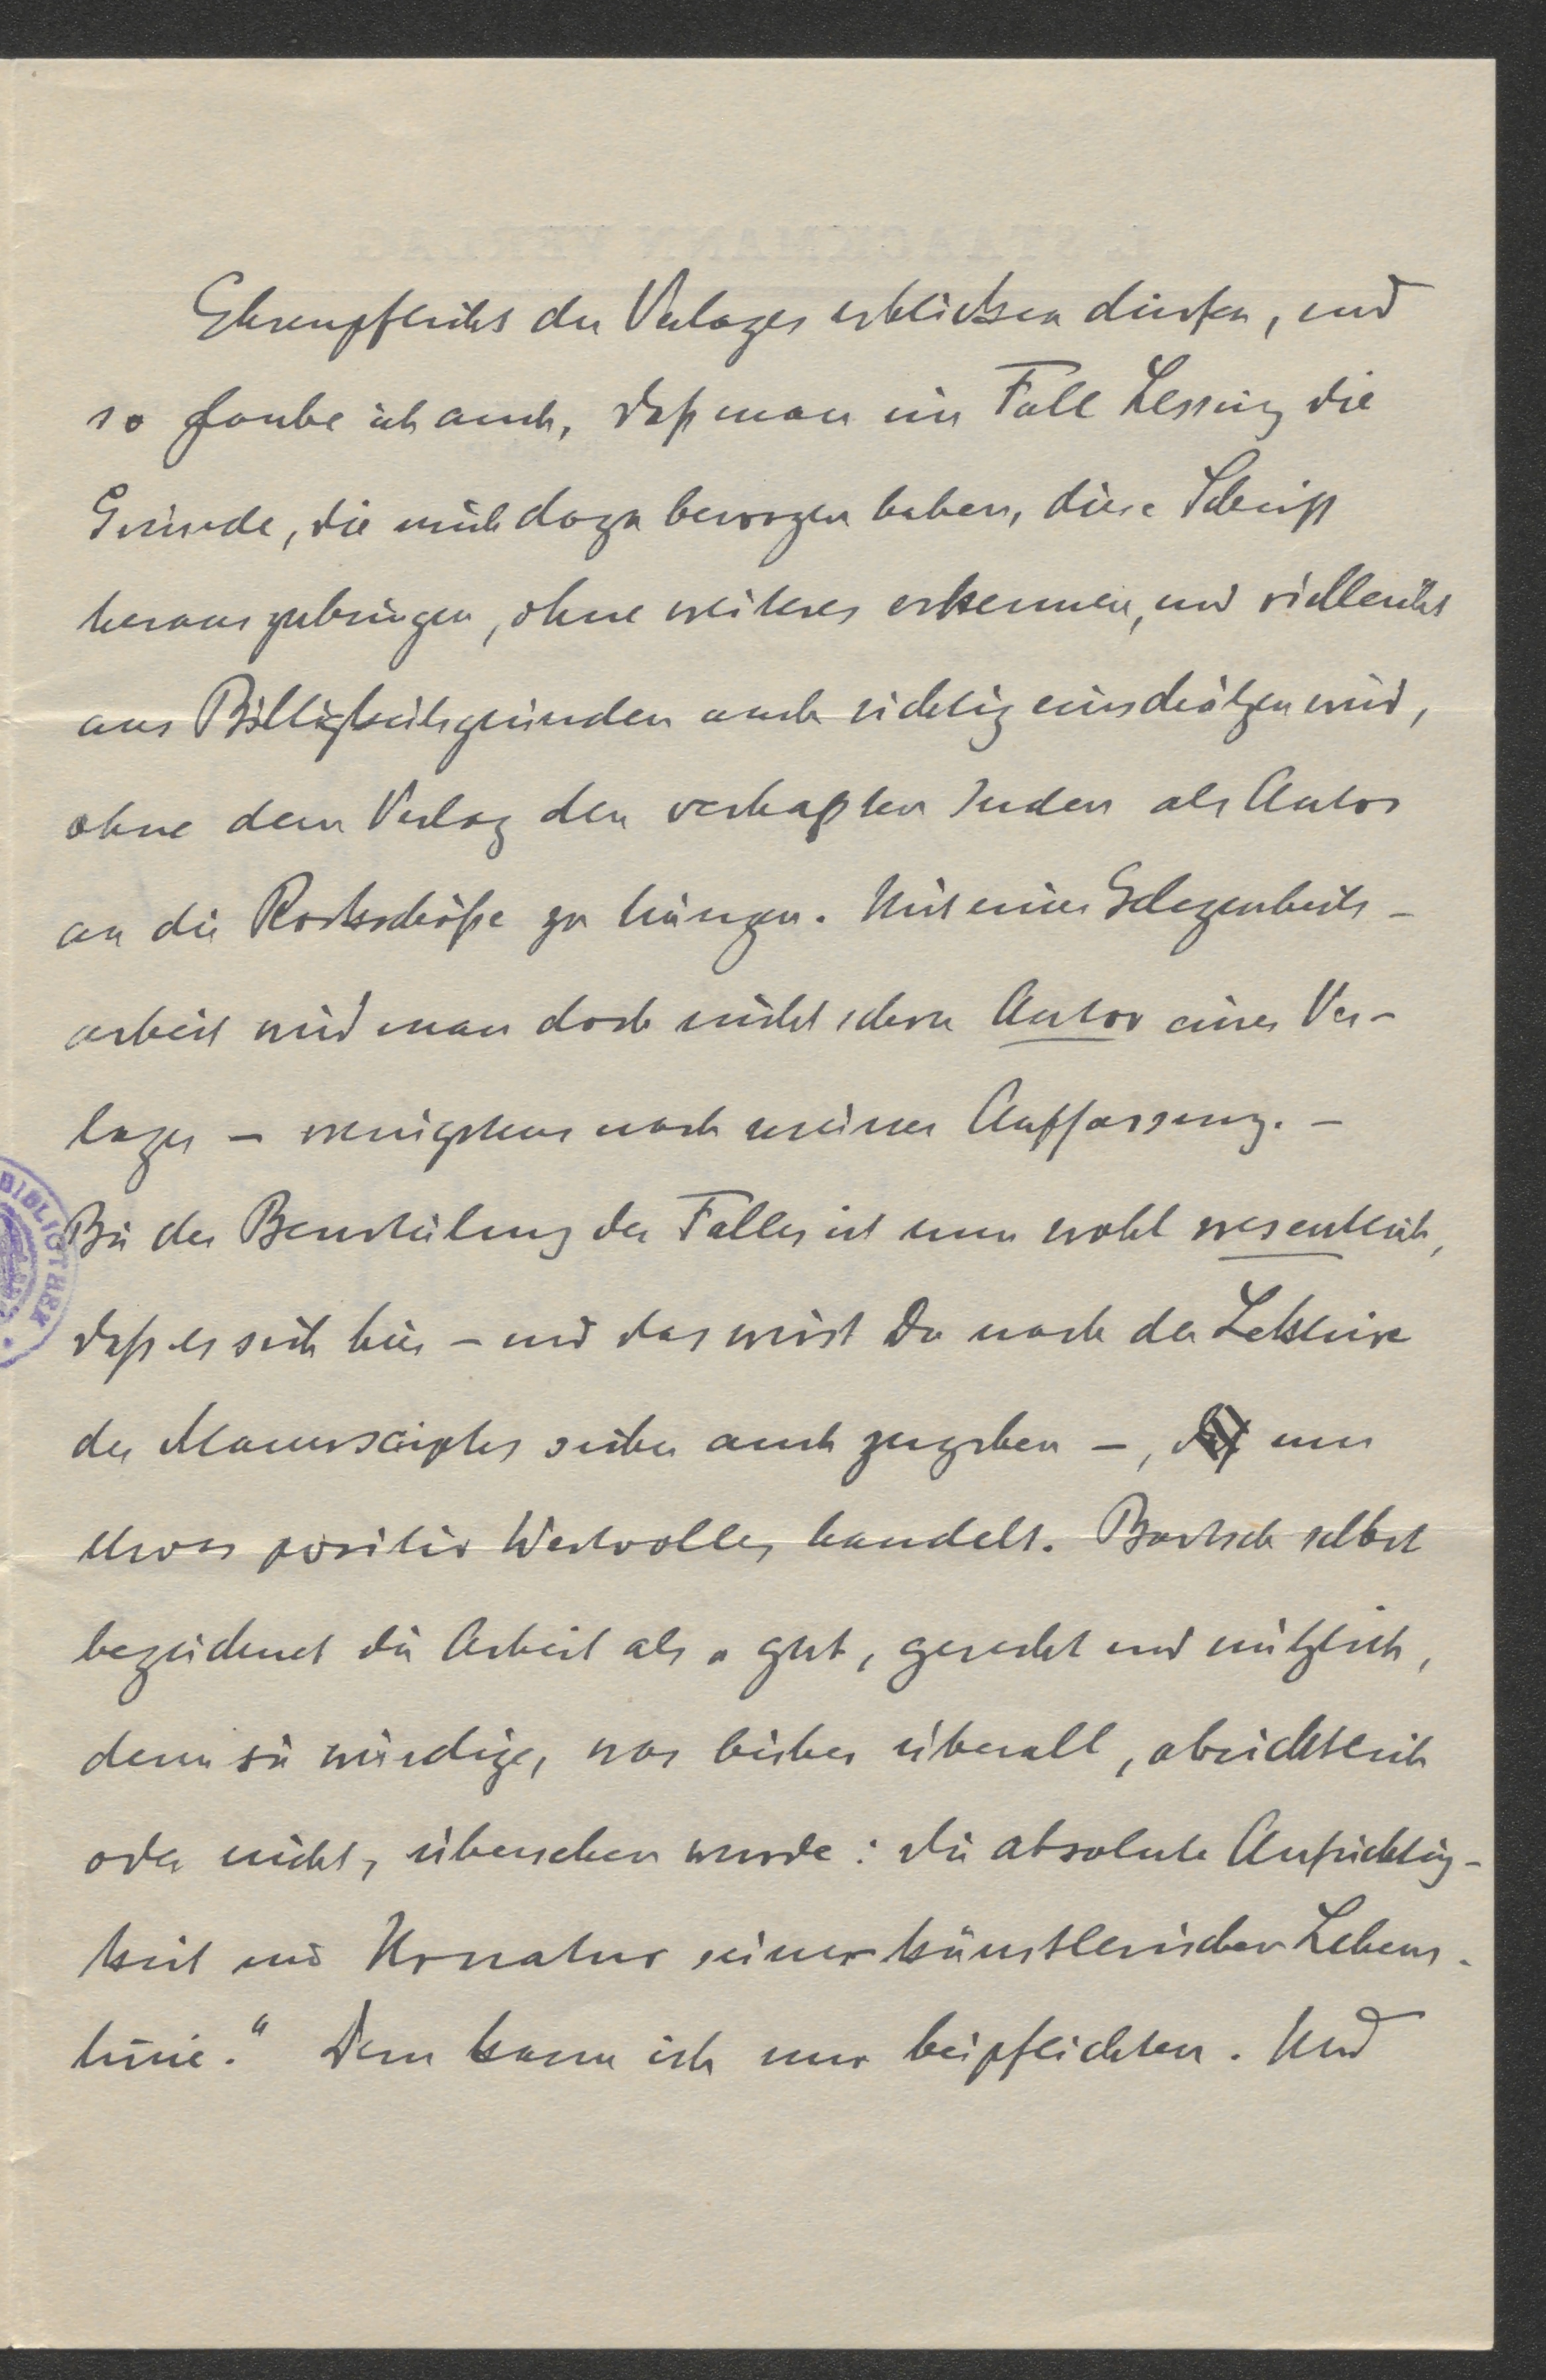 L. STAACKMANN VERLAG
Ehrenpflicht des Verlages erblicken dürfen, und
so glaube ich auch, daß man im Fall Lessing die
Gründe, die mich dazu bewogen haben, diese Schrift
herauszubringen, ohne weiteres erkennen, und vielleicht
aus Billigkeitsgründen auch richtig einschätzen wird,
ohne dem Verlag den verhaßten Juden als Autor
an die Rockschöße zu hängen. Mit einer Gelegenheits-
arbeit wird man doch nicht schon Autor eines Ver-
lages – wenigstens nach meiner Auffassung. –
Bei der Beurteilung des Falles ist nun wohl wesentlich,
daß es sich hier – und das wirst Du nach der Lektüre
des Manuscriptes sicher auch zugeben –, um
etwas positiv Wertvolles handelt. Bartsch selbst
bezeichnet die Arbeit als „gut, gerecht und nützlich,
denn sie würdige, was bisher überall, absichtlich
oder nicht, übersehen wurde: die absolute Aufrichtig-
keit und Urnatur seiner künstlerischen Lebens-
linie.“ Dem kann ich nur beipflichten. Und
BIBLIOTHEK